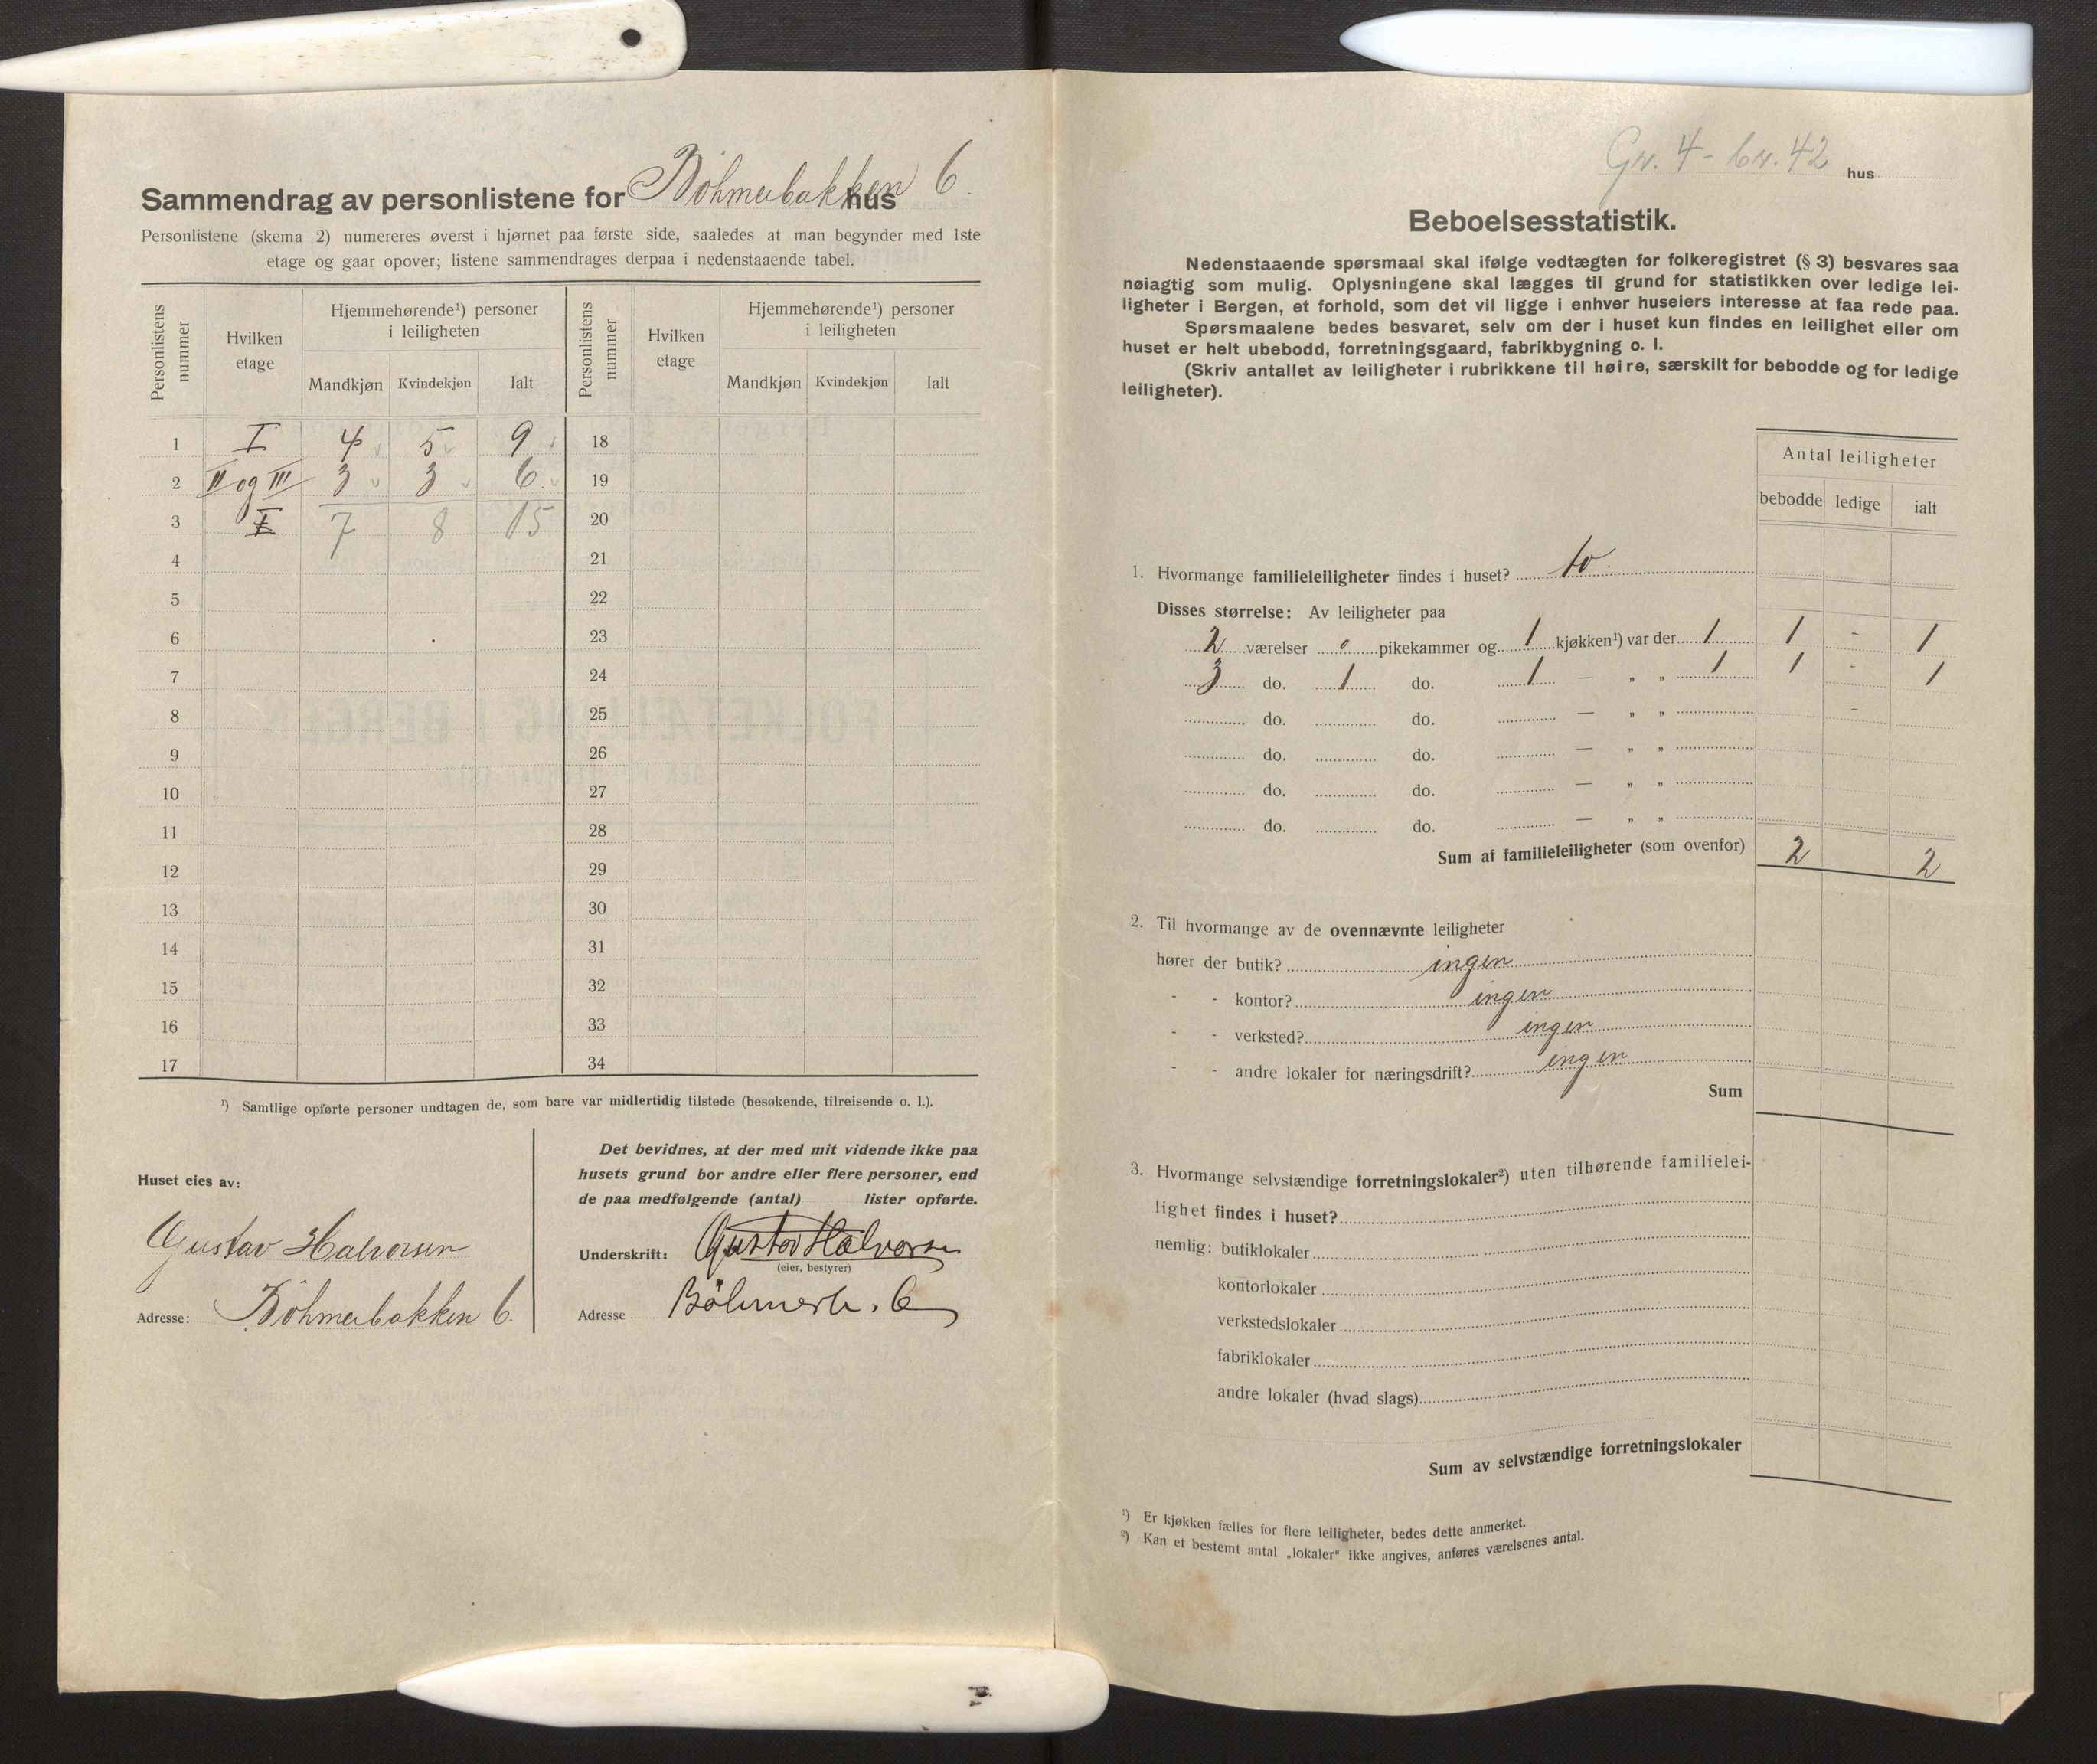 Sammendrag av personlistene for Böhmerbakken 6. hus
Personlistene (skema 2) numereres øverst i hjørnet paa første side, saaledes at man begynder med 1ste
etage og gaar opover; listene sammendrages derpaa i nedenstaaende tabel.
Personlistens nummer | Hvilken etage | Hjemmehørende¹) personer i leiligheten | Personlistens nummer | Hvilken etage | Hjemmehørende¹) personer i leiligheten
Mandkjøn | Kvindekjøn | Ialt | Mandkjøn | Kvindekjøn | Ialt
1 I 4 5 9 18
2 II og III 3 3 6. 19
3 I 7 8 15 20
4 21
5 22
6 23
7 24
8 25
9 26
10 27
11 28
12 29
13 30
14 31
15 32
16 33
17 34
¹) Samtlige opførte personer undtagen de, som bare var midlertidig tilstede (besøkende, tilreisende o. l.).
Huset eies av:
Gustav Halvorsen
Adresse: Böhmerbakken 6.
Det bevidnes, at der med mit vidende ikke paa
husets grund bor andre eller flere personer, end
de paa medfølgende (antal) lister opførte.
Underskrift: Gustav Halvorsen
(eier, bestyrer)
Adresse Böhmerb. 6
Gr. 4 - br. 42 hus
Beboelsesstatistik.
Nedenstaaende spørsmaal skal ifølge vedtægten for folkeregistret (§ 3) besvares saa
nøiagtig som mulig. Oplysningene skal lægges til grund for statistikken over ledige lei-
ligheter i Bergen, et forhold, som det vil ligge i enhver huseiers interesse at faa rede paa.
Spørsmaalene bedes besvaret, selv om der i huset kun findes en leilighet eller om
huset er helt ubebodd, forretningsgaard, fabrikbygning o. l.
(Skriv antallet av leiligheter i rubrikkene til høire, særskilt for bebodde og for ledige
leiligheter).
Antal leiligheter
bebodde ledige ialt
1. Hvormange familieleiligheter findes i huset? to.
Disses størrelse: Av leiligheter paa
2 værelser 0 pikekammer og 1 kjøkken¹) var der 1 1 - 1
3 do. 1 do. 1 — „ „ 1 1 - 1
do. do. — „ „ -
do. do. — „ „
do. do. — „ „
do. do. — „ „
Sum af familieleiligheter (som ovenfor) 2 2
2. Til hvormange av de ovennævnte leiligheter
hører der butik? ingen
- - kontor? ingen
- - verksted? ingen
- - andre lokaler for næringsdrift? ingen
Sum
3. Hvormange selvstændige forretningslokaler²) uten tilhørende familielei-
lighet findes i huset?
nemlig: butiklokaler
kontorlokaler
verkstedslokaler
fabriklokaler
andre lokaler (hvad slags)
Sum av selvstændige forretningslokaler
¹) Er kjøkken fælles for flere leiligheter, bedes dette anmerket.
²) Kan et bestemt antal „lokaler“ ikke angives, anføres værelsenes antal.